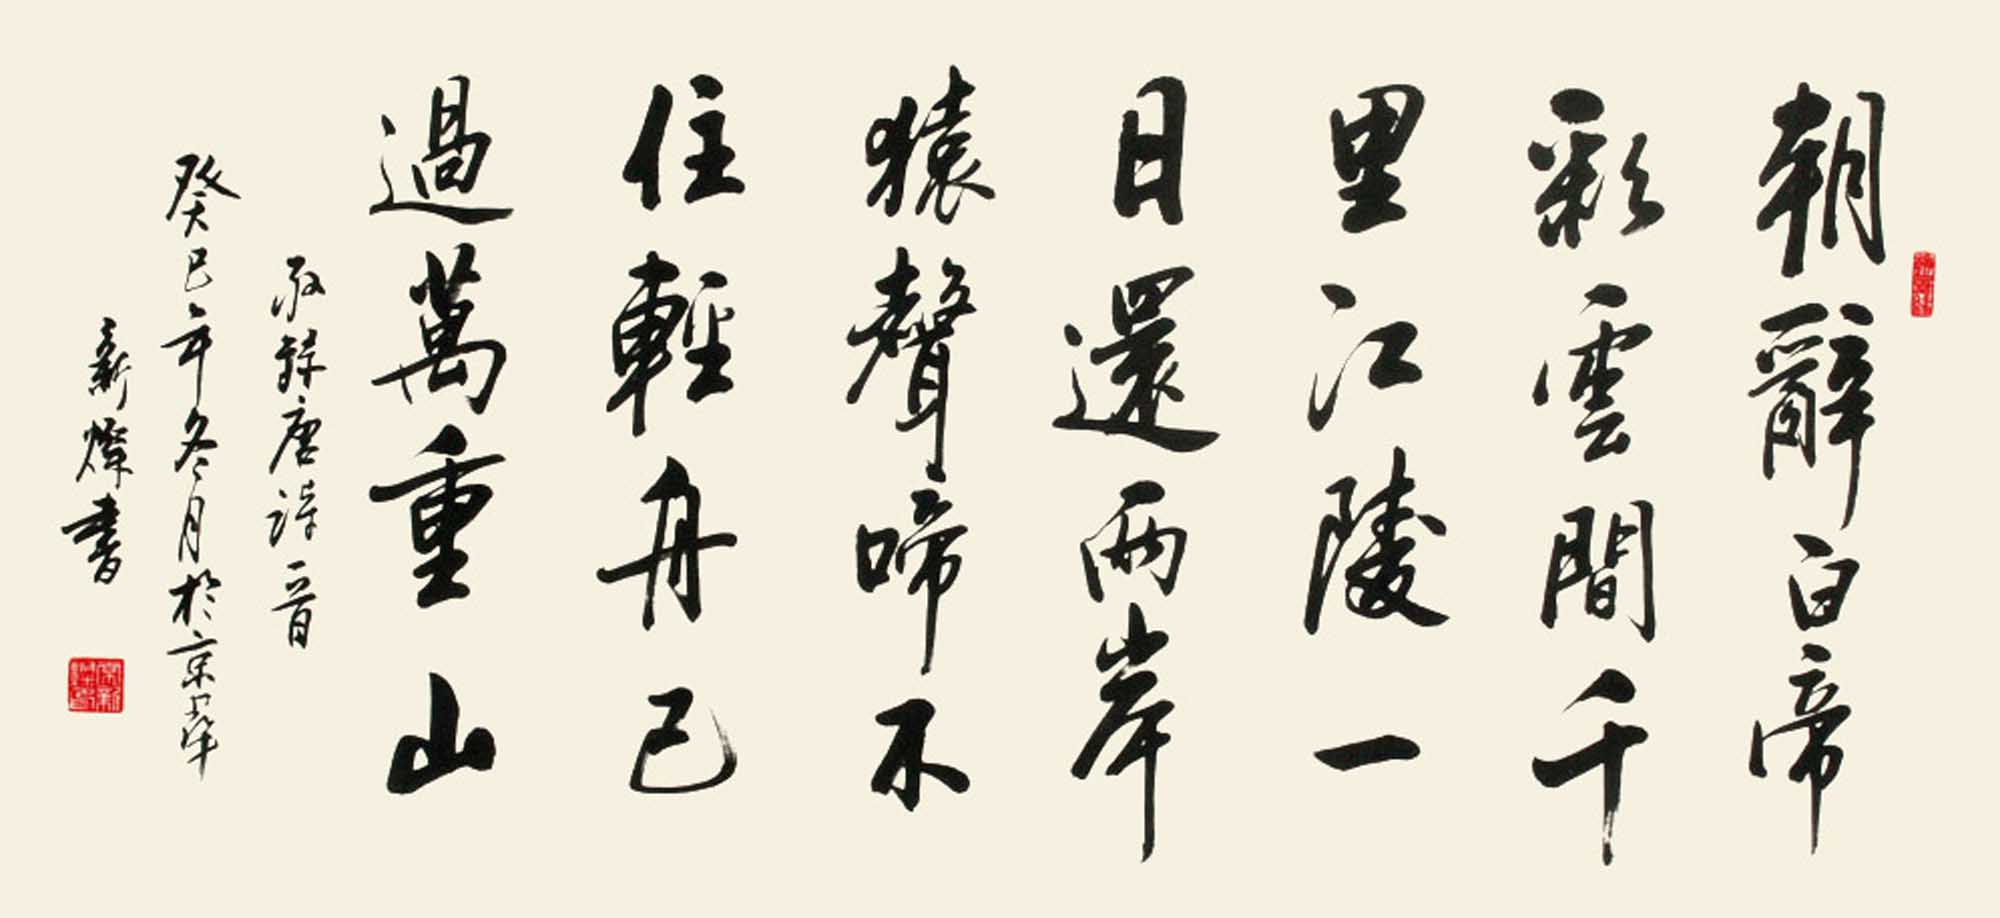 朝辭白帝
彩雲間千
里江陵一
日還兩岸
猿聲啼不
住輕舟已
過萬重山
敬錄唐詩一首
癸巳年冬月於京華
新燦書